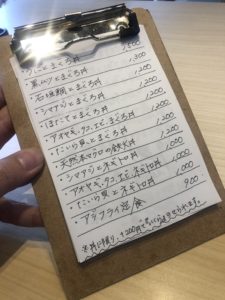 ・うにとまぐろ丼 1,500
・黒ムツとまぐろ丼 1,300
・石垣鯛とまぐろ丼 1,200
・シマアジとまぐろ丼 1,200
・ほたてとまぐろ丼 1,200
・アオヤギ、タコ、エビ、まぐろ丼 1,200
・たいら貝とまぐろ丼 1,200
・天然本マグロの鉄火丼 1,200
・シマアジとネギトロ丼 1,000
・アオヤギ、タコ、エビ、ネギトロ丼 1,000
・たいら貝とネギトロ丼 1,000
・アジフライ定食 900-
丼に限り、+200円で